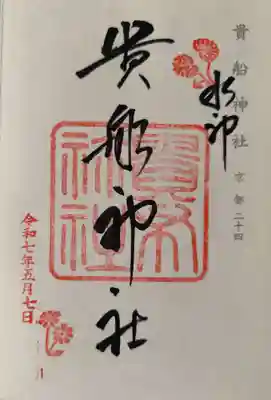 貴船神社 京都二十四
水神
貴船神社
貴船神社
令和七年五月七日